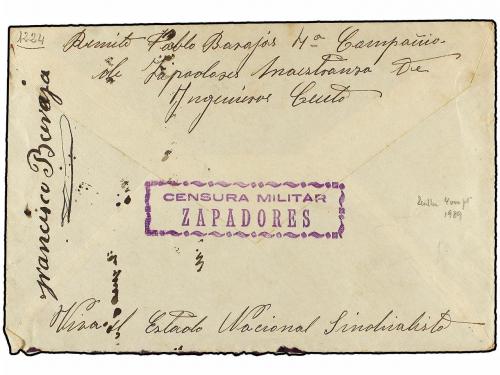 1224
Remite Pablo Barajós 4ª Compañia
de Zapadores Maestranza de
Ingenieros Ceuta
Francisco Baraja
CENSURA MILITAR
ZAPADORES
1989
Viva el Estado Nacional Sindicalista